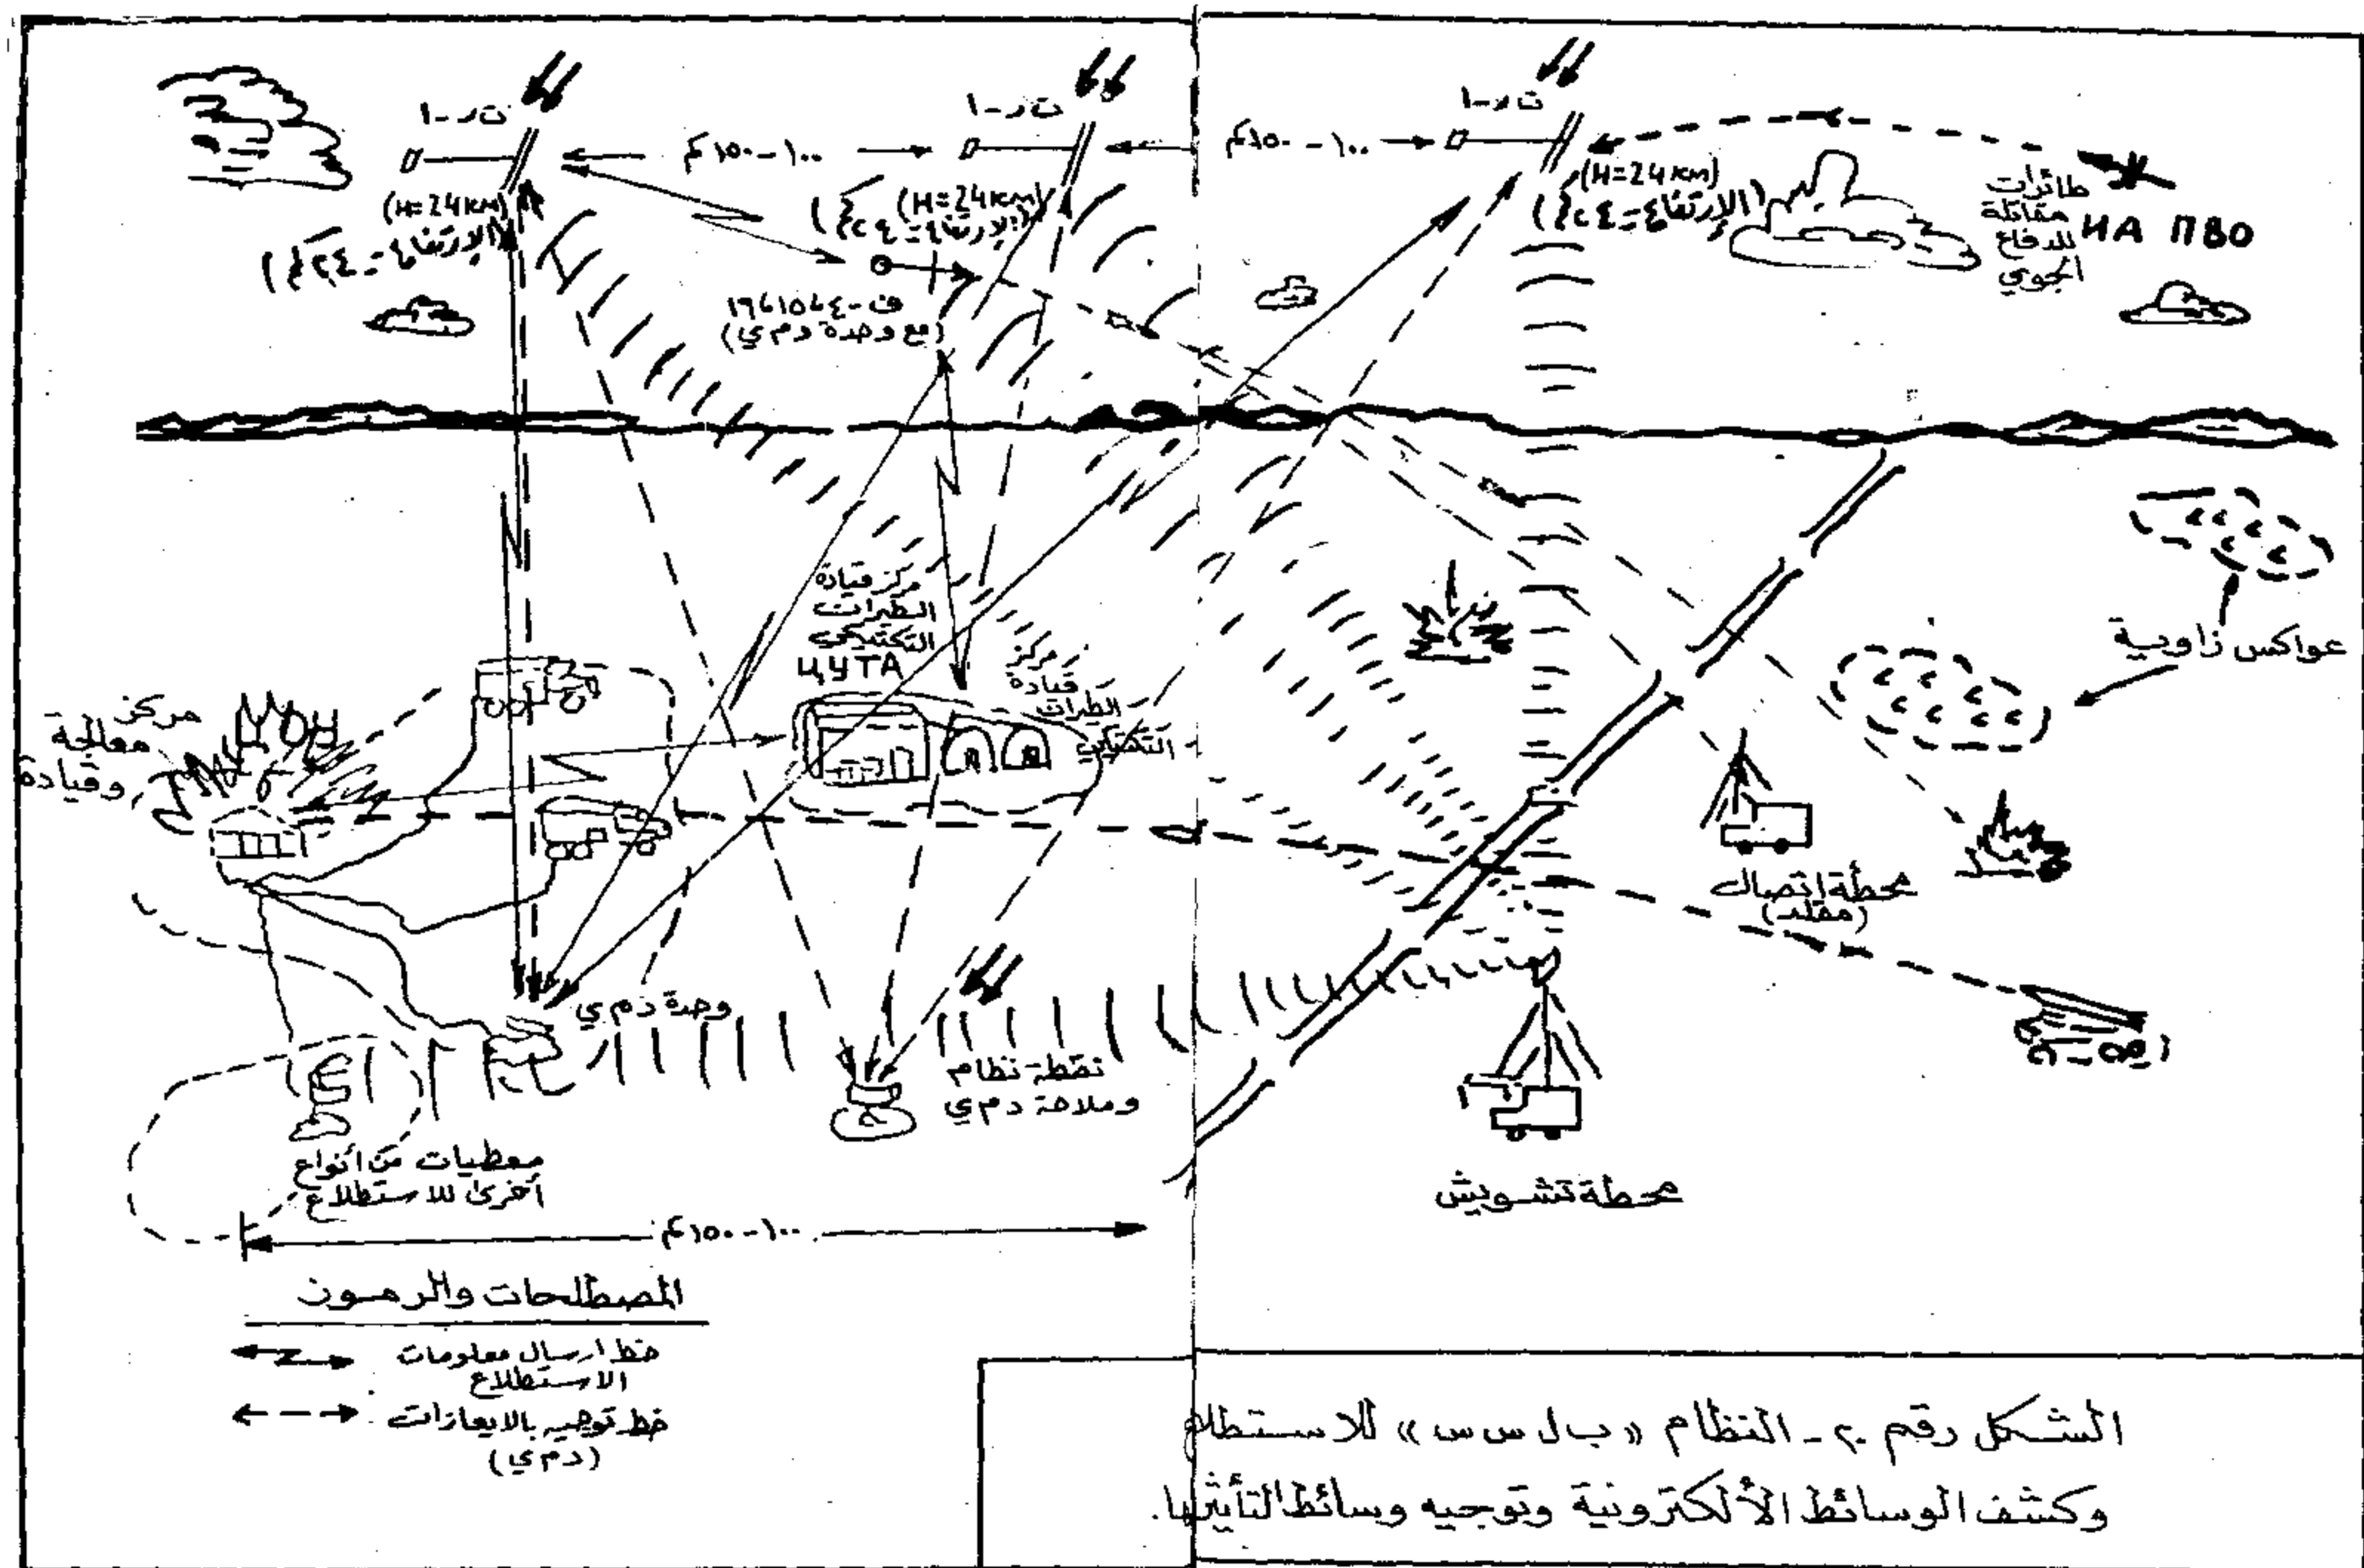 ت ر-١
ت ر-١
ت ر-١
١٠٠-١٥٠كم
١٠٠-١٥٠كم
(H=24KM)
(الإرتفاع-٢٤كم)
(H=24KM)
(الإرتفاع-٢٤كم)
(H=24KM)
(الإرتفاع-٢٤كم)
طائرات
مقاتلة
للدفاع
الجوي
ИА ПВО
(مع وحدة دم ي)
مركز قيادة
الطيران
التكتيكي
ЦУТА
مركز
قيادة
الطيران
التكتيكي
عواكس زاوية
مركز
معالجة
وقيادة
محطة اتصال
(مقلد)
وحدة دم ي
نقطة نظام
وملاحة دم ي
معطيات من أنواع
أخرى للاستطلاع
محطة تشويش
١٠٠-١٥٠كم
المصطلحات والرموز
خط ارسال معلومات
الاستطلاع
خط توجيه بالايعازات
(دم ي)
الشكل رقم ٢- النظام «ب ل س س» للاستطلاع
وكشف الوسائط الألكترونية وتوجيه وسائط التأثير لها.